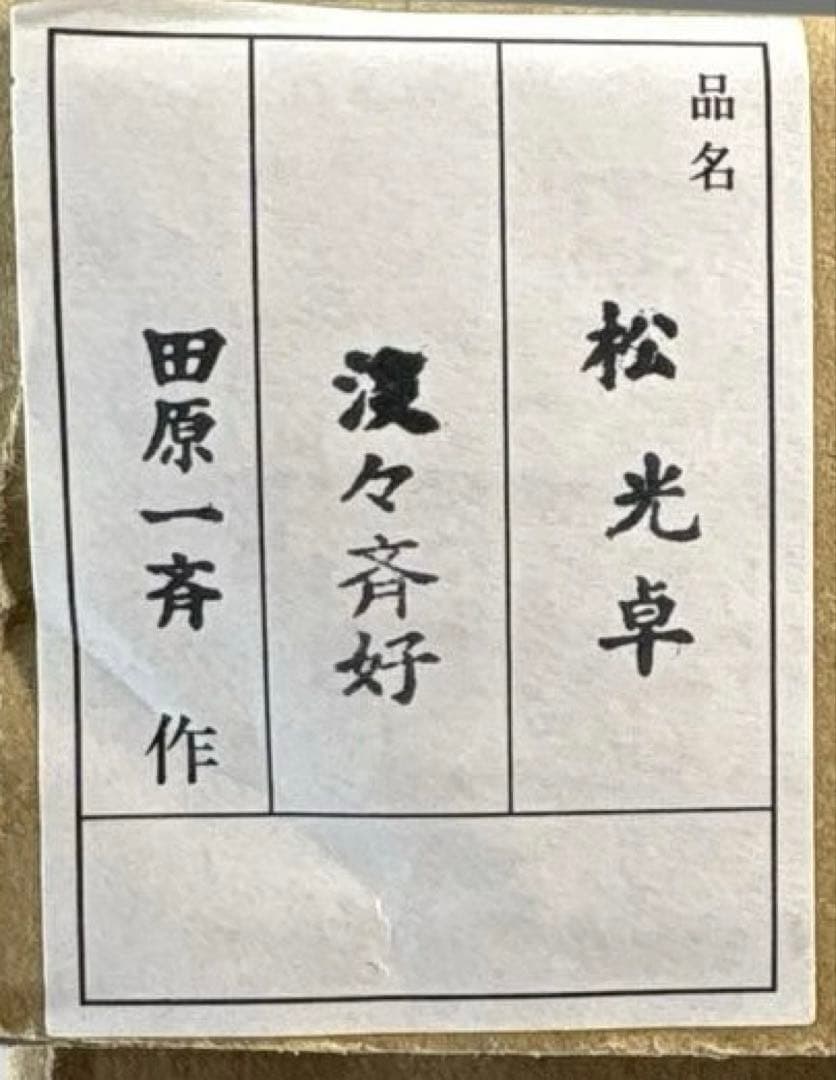 品名
松光卓
淡々斉好
田原一斉 作